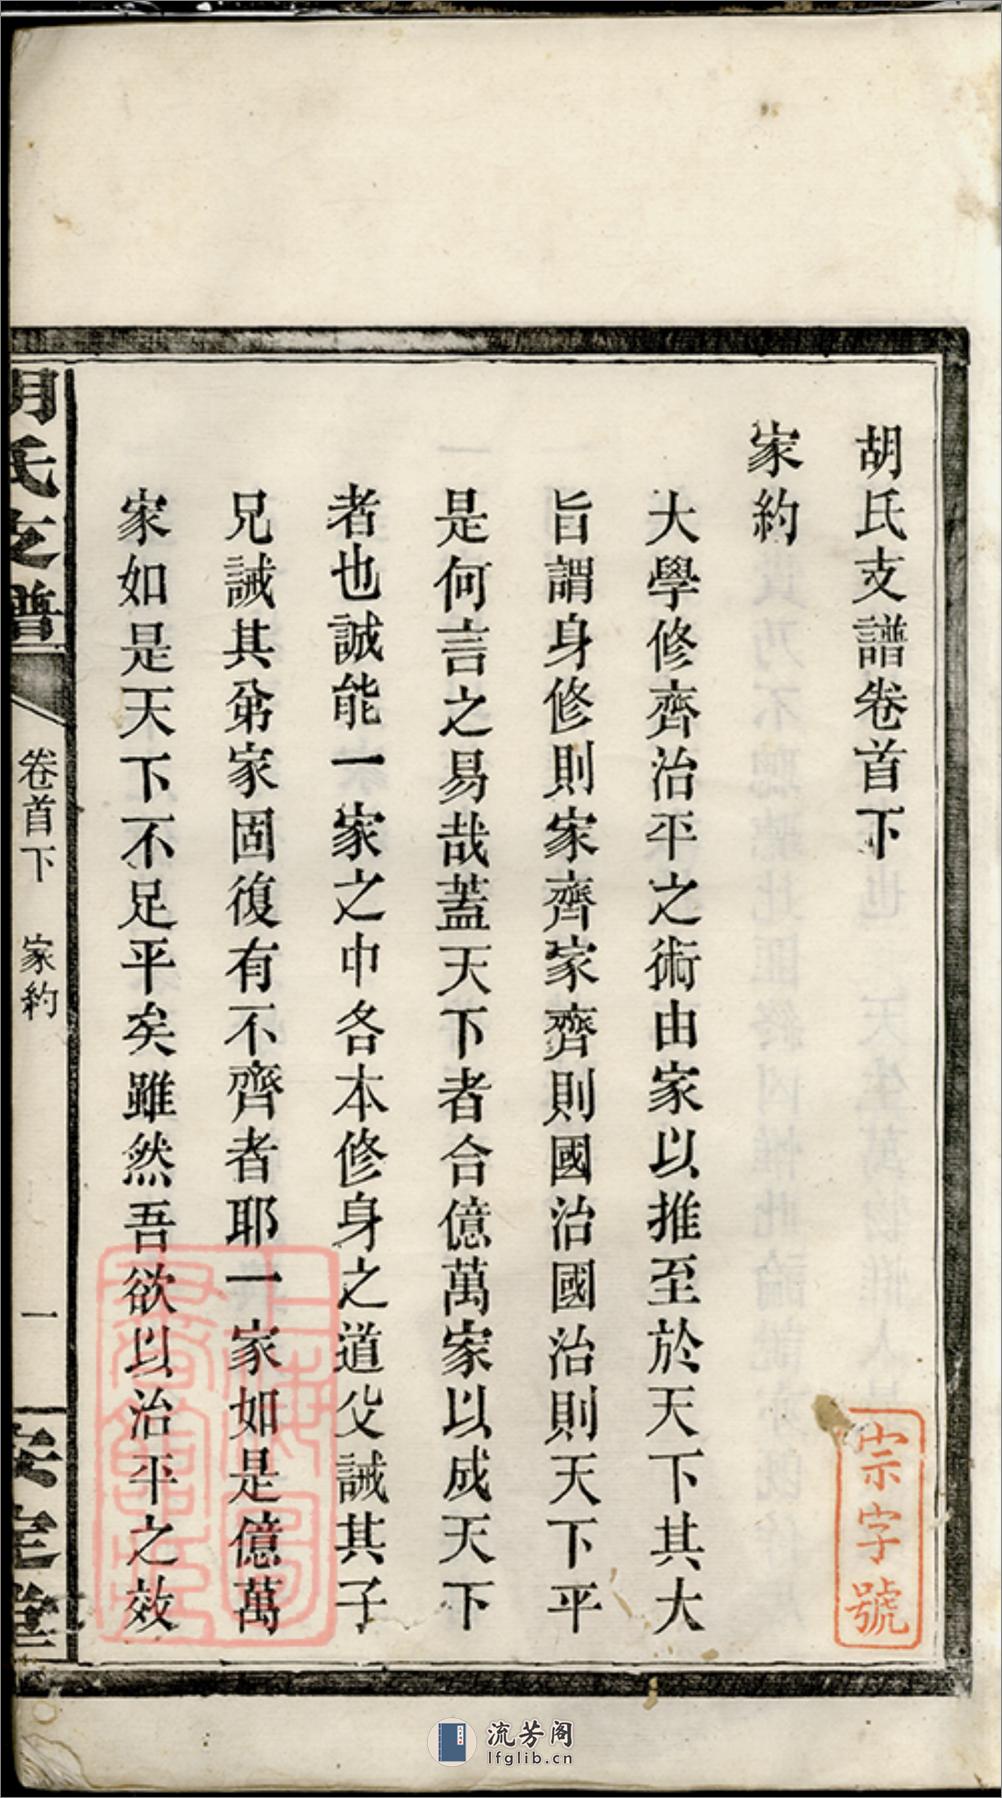 胡氏支譜卷首下
家約
大學修齊治平之術由家以推至於天下其大
旨謂身修則家齊家齊則國治國治則天下平
是何言之易哉蓋天下者合億萬家以成天下
者也誠能一家之中各本修身之道父誡其子
兄誡其弟家固復有不齊者耶一家如是億萬
家如是天下不足平矣雖然吾欲以治平之效
胡氏支譜
卷首下 家約
一
安定堂
宗字號
上海圖
書館藏
流芳阁
lfglib.cn